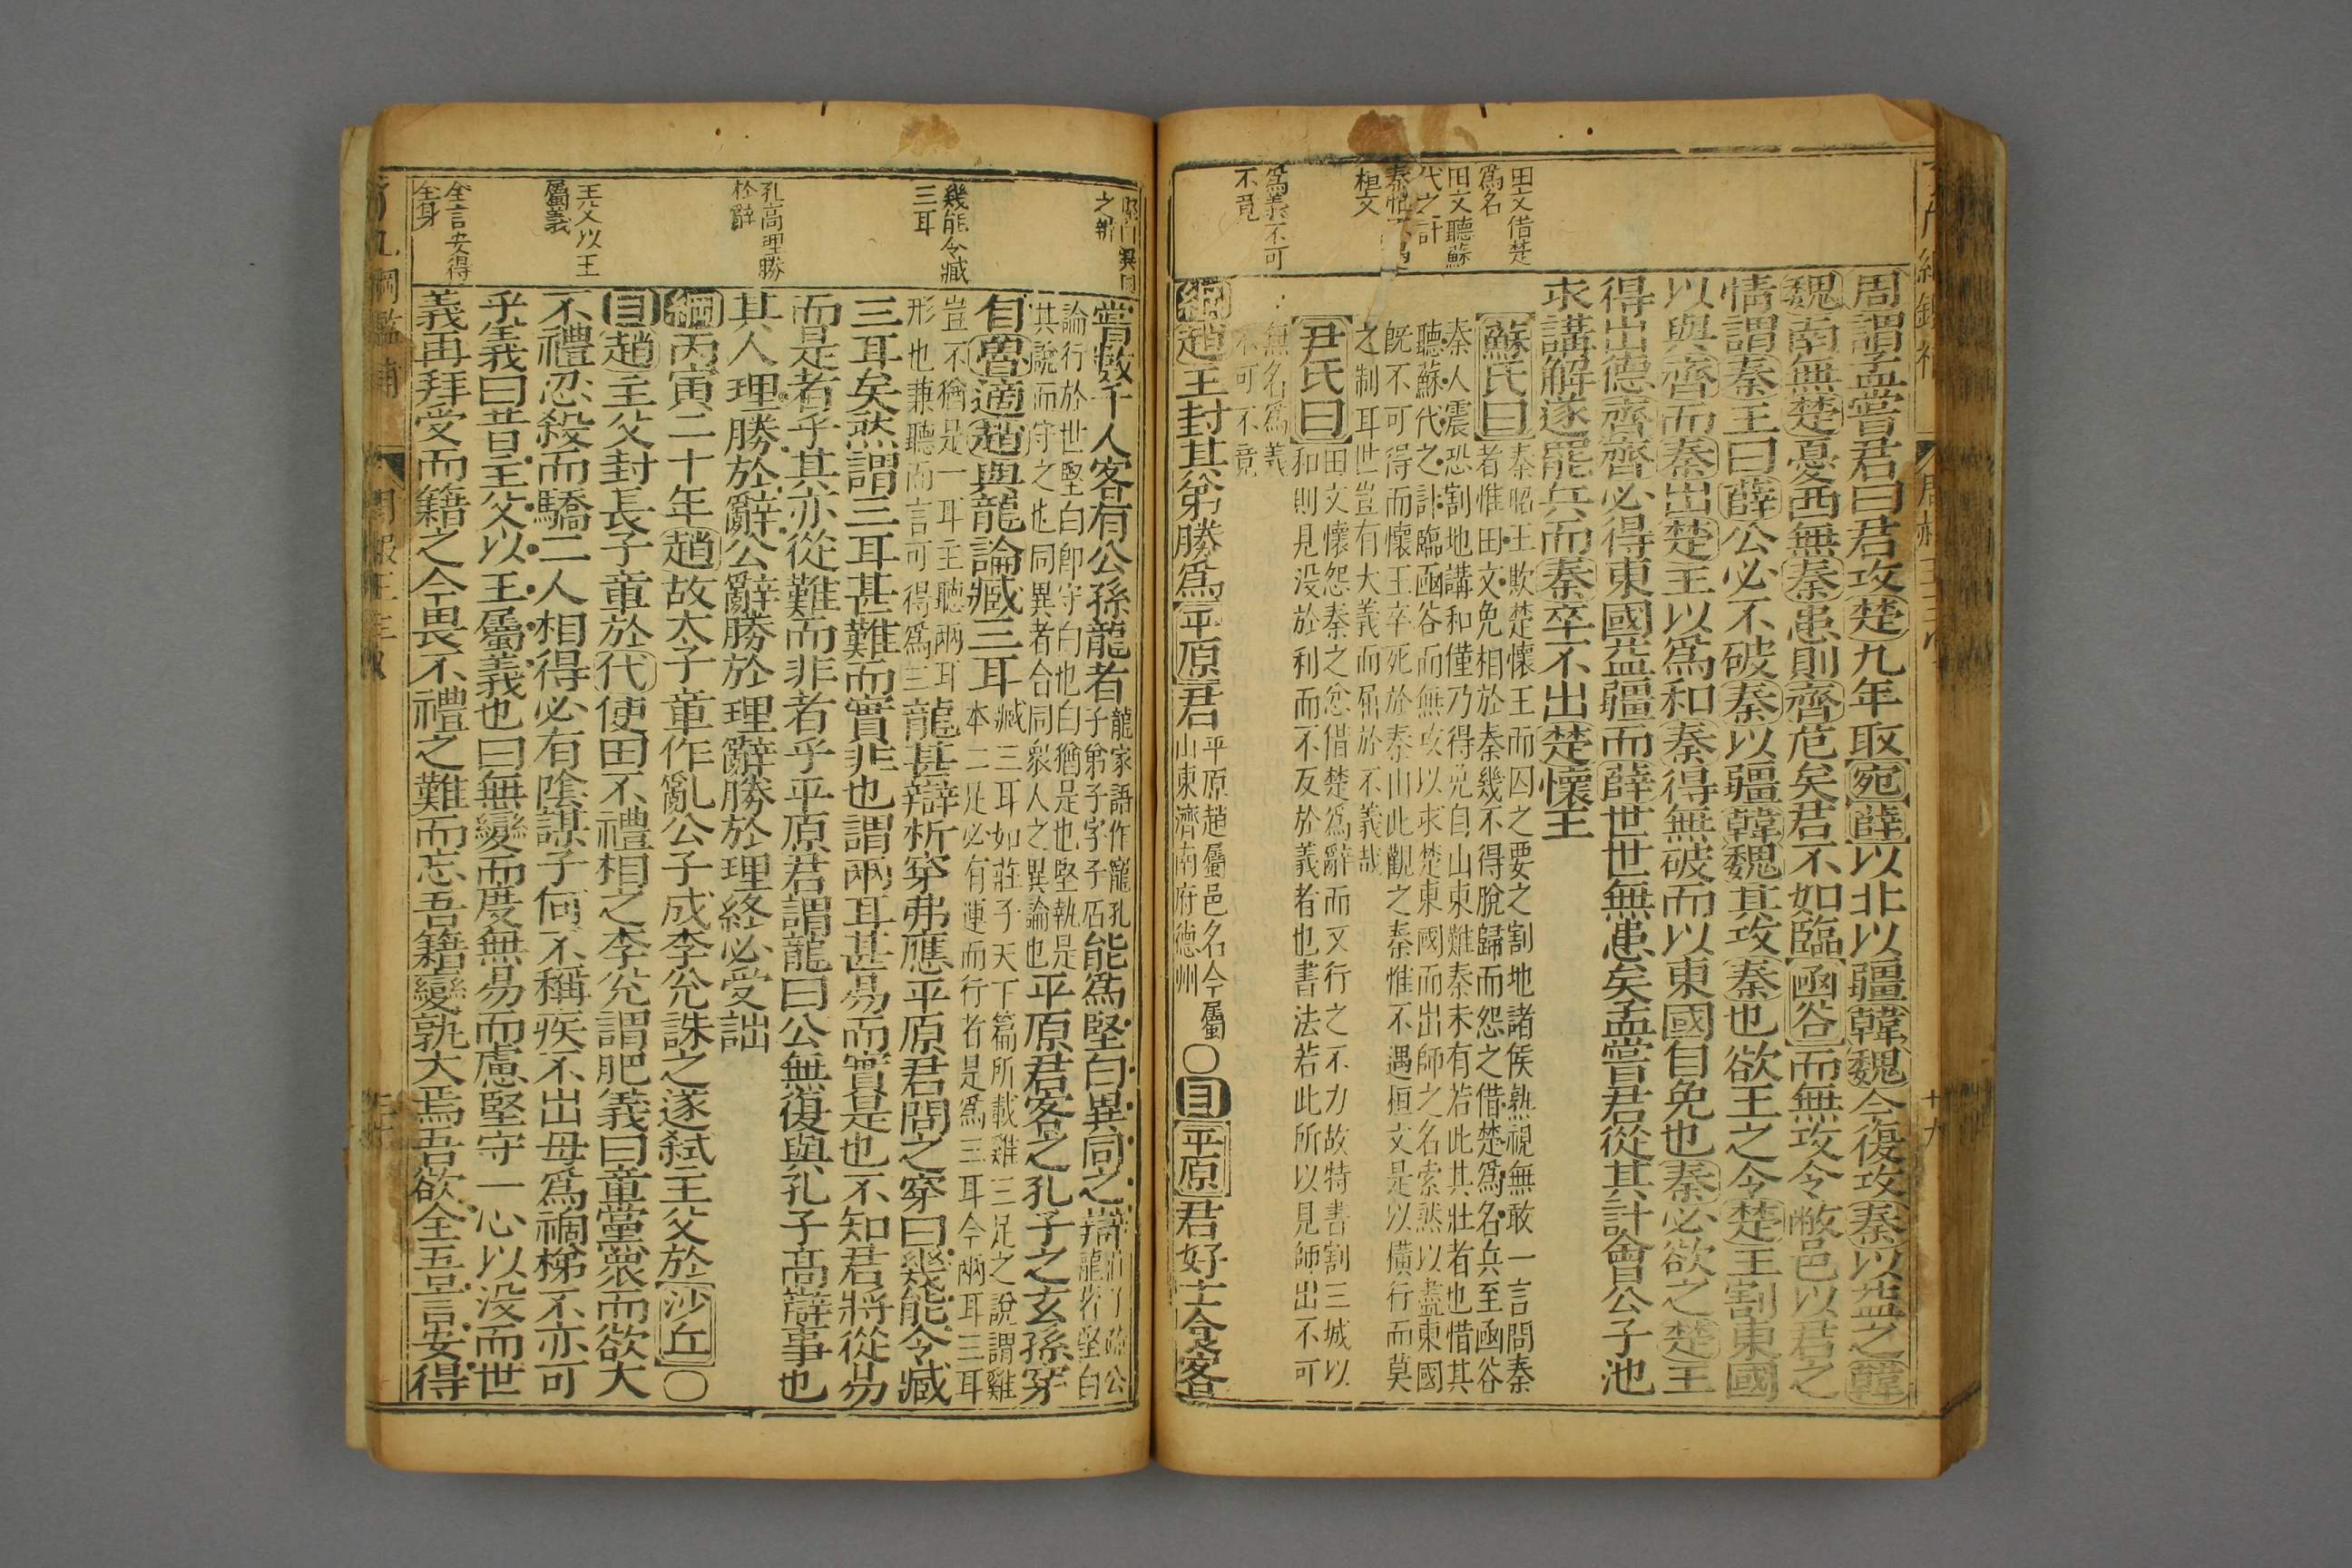 田文借楚
爲名
田文聽蘇
代之計
桓文
爲義不可
不竟
周謂孟嘗君曰君攻楚九年取宛薛以非以疆韓魏今復攻秦以益之韓
魏南無楚憂西無秦患則齊危矣君不如臨函谷而無攻令敝邑以君之
情謂秦王曰薛公必不破秦以疆韓魏其攻秦也欲王之令楚王割東國
以與齊而秦出楚王以爲和秦得無破而以東國自免也秦必欲之楚王
得出德齊齊必得東國益疆而薛世世無患矣孟嘗君從其計會公子池
求講解遂罷兵而秦卒不出楚懷王
蘇氏曰秦昭王欺楚懷王而囚之要之割地諸侯熟視無敢一言問秦
者惟田文免相於秦幾不得脫歸而怨之借楚爲名兵至函谷
秦人震恐割地講和僅乃得免自山東難秦未有若此其壯者也惜其
聽蘇代之計臨函谷而無攻以求楚東國而出師之名索然以盡東國
旣不可得而懷王卒死於秦由此觀之秦惟不遇桓文是以橫行而莫
之制耳世豈有大義而屈於不義哉
尹氏曰田文懷怨秦之忿借楚爲辭而又行之不力故特書割三城以
和則見没於利而不反於義者也書法若此所以見師出不可
無名爲義
不可不竟
綱趙王封其弟勝爲平原君平原趙屬邑名今屬
山東濟南府德州〇目平原君好士食客
堅白異同
之辨
幾能令臧
三耳
孔高理勝
於辭
主父以王
屬義
全言安得
全身
嘗數千人客有公孫龍者龍家語作寵孔
子弟子字子石能爲堅白異同之辯
龍若堅白
論行於世堅白卽守白也白猶是也堅執是
其說而守之也同異者合同衆人之異論也平原君客之孔子之玄孫穿
自魯適趙與龍論臧三耳臧三耳如莊子天下篇所載雞三足之說謂雞
本二足必有運而行者是爲三耳今兩耳三耳
豈不猶是一耳主聽兩耳
形也兼聽而言可得爲三龍甚辯析穿弗應平原君問之穿曰幾能令臧
三耳矣然謂三耳甚難而實非也謂兩耳甚易而實是也不知君將從易
而是者乎其亦從難而非者乎平原君謂龍曰公無復與孔子高辯事也
其人理勝於辭公辭勝於理辭勝於理終必受詘
綱丙寅二十年趙故太子章作亂公子成李兊誅之遂弑主父於沙丘〇
目趙主父封長子章於代使田不禮相之李兊謂肥義曰章黨衆而欲大
不禮忍殺而驕二人相得必有陰謀子何不稱疾不出毋爲禍梯不亦可
乎義曰昔主父以王屬義也曰無變而度無易而慮堅守一心以没而世
義再拜受而籍之今畏不禮之難而忘吾籍變孰大焉吾欲全吾言安得